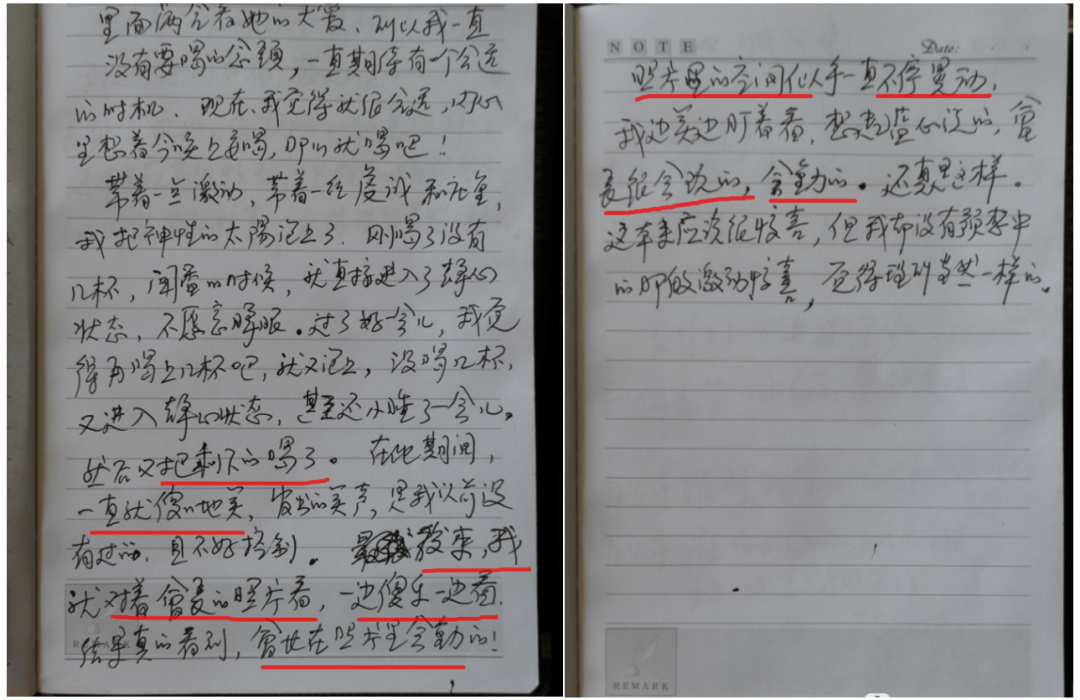 里面满含着她的大爱，所以我一直
没有要喝的念头，一直期待有一个合适
的时机。现在，我觉得就很合适，内心
里想着今晚上要喝，那么就喝吧！
带着一点激动，带着一丝虔诚和
我把神性的太陽泡上了。刚喝了没有
几杯，闻香的时候，就直接进入了静心
状态，不愿意睁眼。过了好一会儿，我觉
得再喝上几杯吧，就又泡上，没喝几杯，
又进入静心状态，甚至还小睡了一会儿。
然后又把剩下的喝了。在此期间，
一直就傻傻地笑，发出的笑声，是我以前没
有过的，且不好控制。后来，我
就对着會長的照片看，一边傻乐一边看，
结果真的看到，會长在照片里会動的！
REMARK
NOTE
Date:
照片里的空间似乎一直不停晃动，
我边笑边盯着看，想起蓝心说的，會
長很会说的，会動的。还真是这样。
这本来应该很惊喜，但我却没有预想中
的那般激动惊喜，觉得理所当然一样的。
REMARK